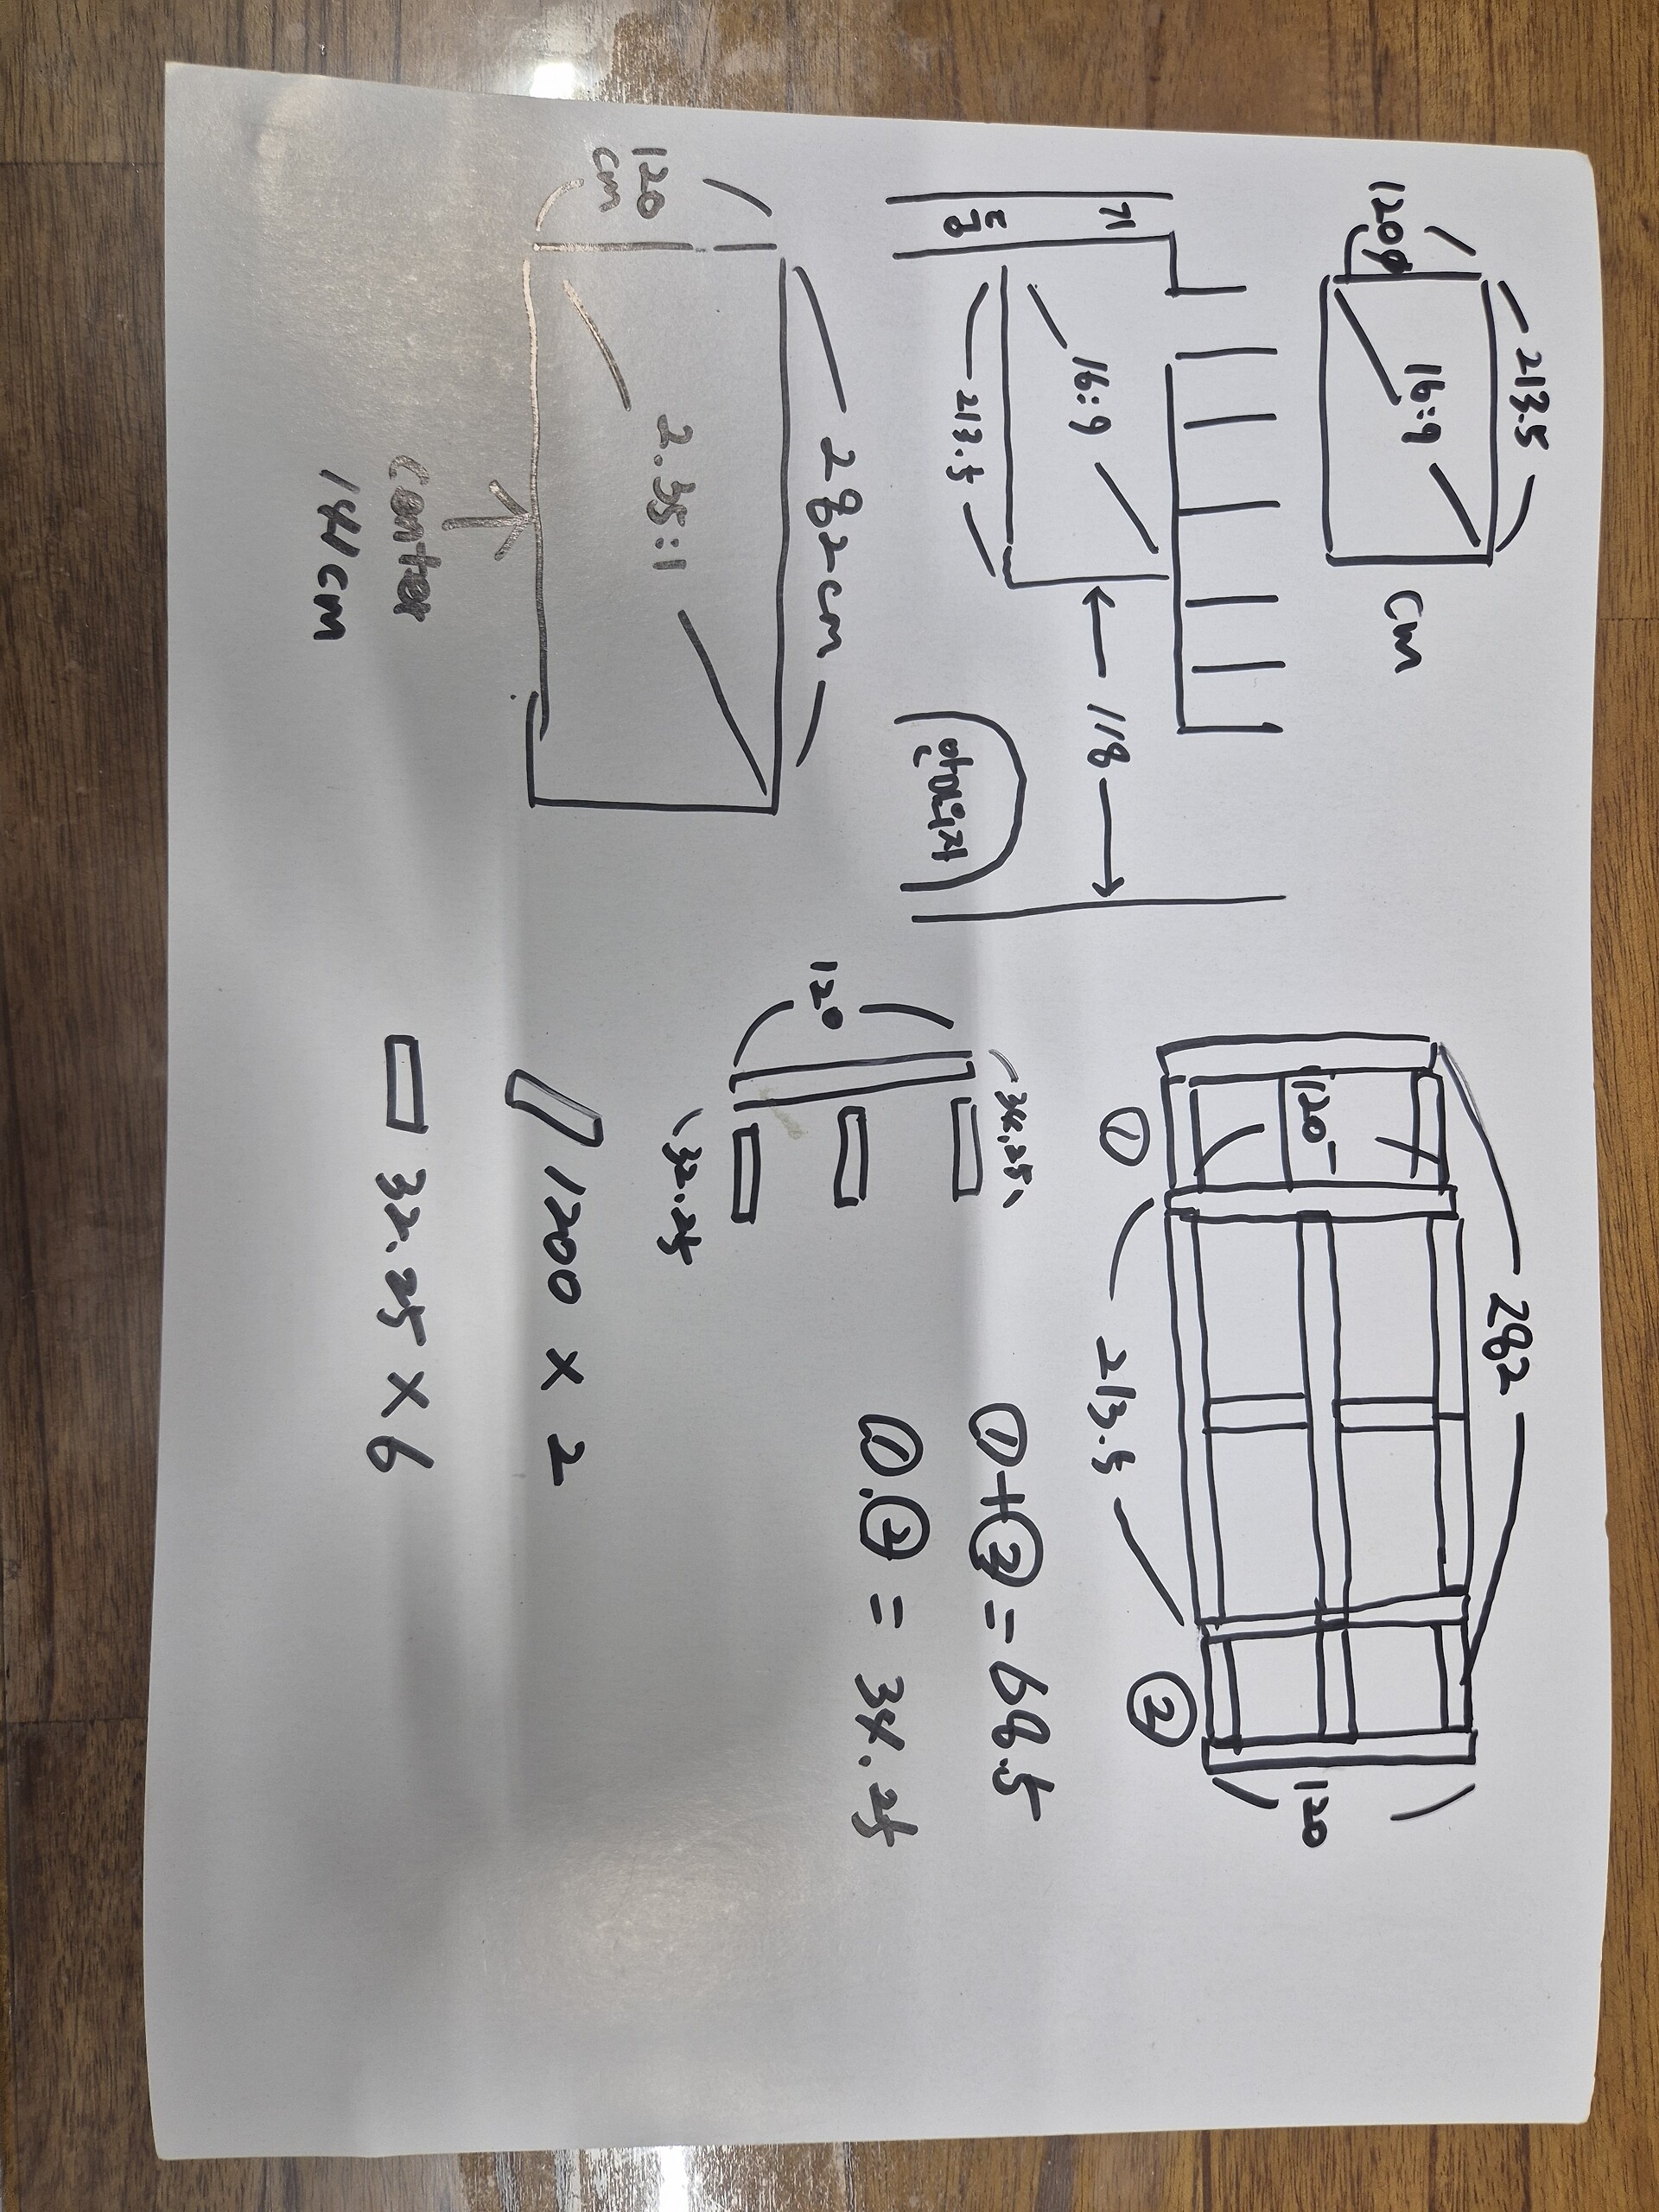 213.5
120
16:9
cm
기
둥
16:9
213.5
118
안마의자
120
cm
282cm
2.35:1
center
141cm
282
120
①
213.5
②
120
①+②=68.5
①.②=34.25
34.25
120
32.25
1200 x 2
32.25 x 6